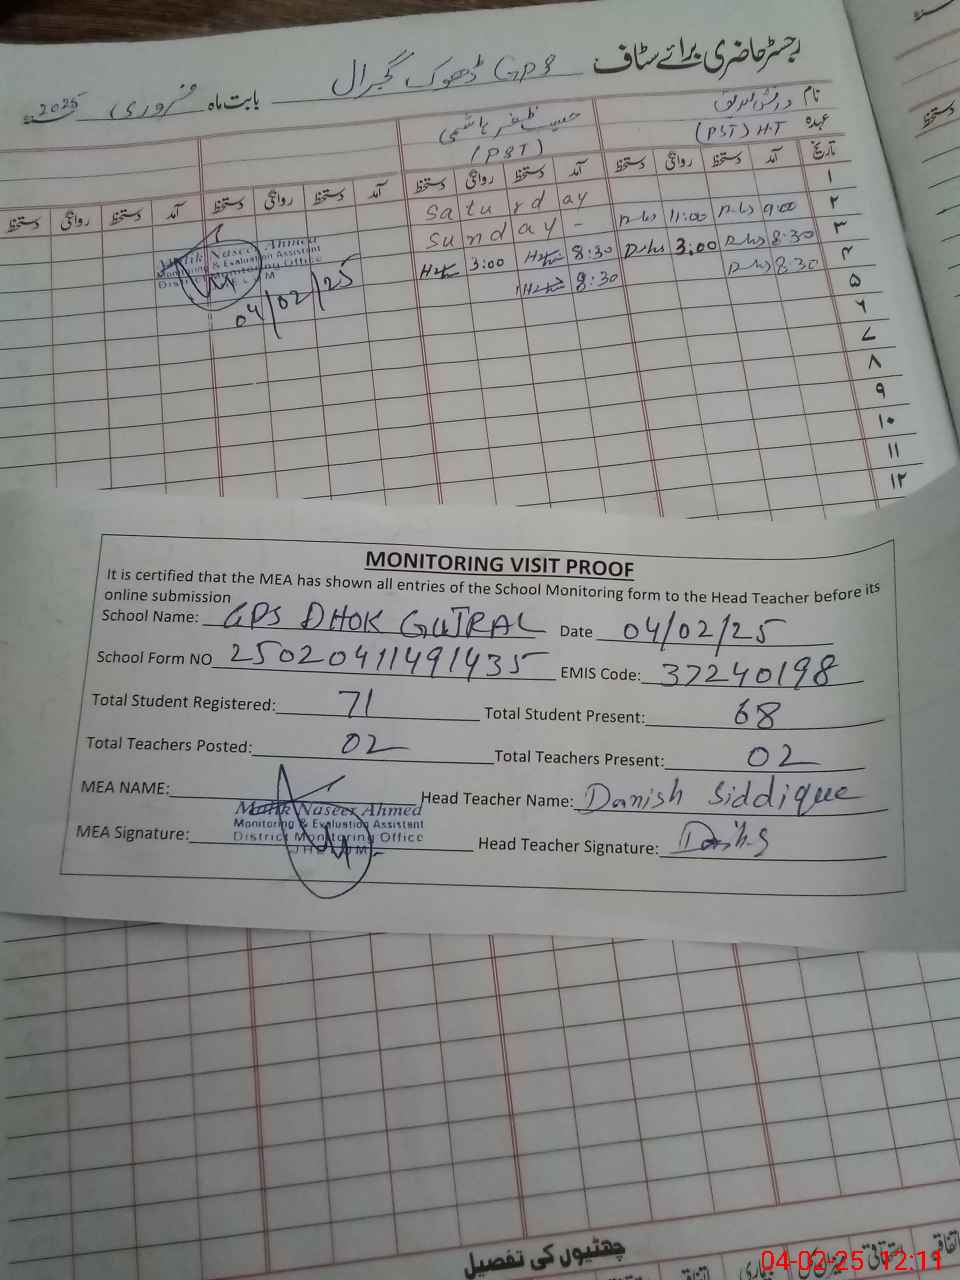 رجسٹر حاضری برائے سٹاف GPS ڈھوک گجرال بابت ماہ فروری 2025ء
نام دانش صدیق حسیب ظفر ہاشمی
عہدہ (PST) H.T (PST)
تاریخ آمد دستخط روانگی دستخط آمد دستخط روانگی دستخط آمد دستخط روانگی دستخط آمد دستخط روانگی دستخط
۱ Saturday
۲ 9:00 11:00 Sunday -
۳ 8:30 3:00 8:30 3:00
۴ 8:30 8:30
۵
۶
۷
۸
۹
۱۰
۱۱
۱۲
Malik Naseer Ahmed
Monitoring & Evaluation Assistant
District Monitoring Office
04/02/25
MONITORING VISIT PROOF
It is certified that the MEA has shown all entries of the School Monitoring form to the Head Teacher before its
online submission
School Name: GPS DHOK GUJRAL Date 04/02/25
School Form NO 25020411491435 EMIS Code: 37240198
Total Student Registered: 71 Total Student Present: 68
Total Teachers Posted: 02 Total Teachers Present: 02
MEA NAME: Head Teacher Name: Danish Siddique
Malik Naseer Ahmed
Monitoring & Evaluation Assistant
District Monitoring Office
JHELUM
MEA Signature: Head Teacher Signature:
چھٹیوں کی تفصیل
04-02-25 12:11